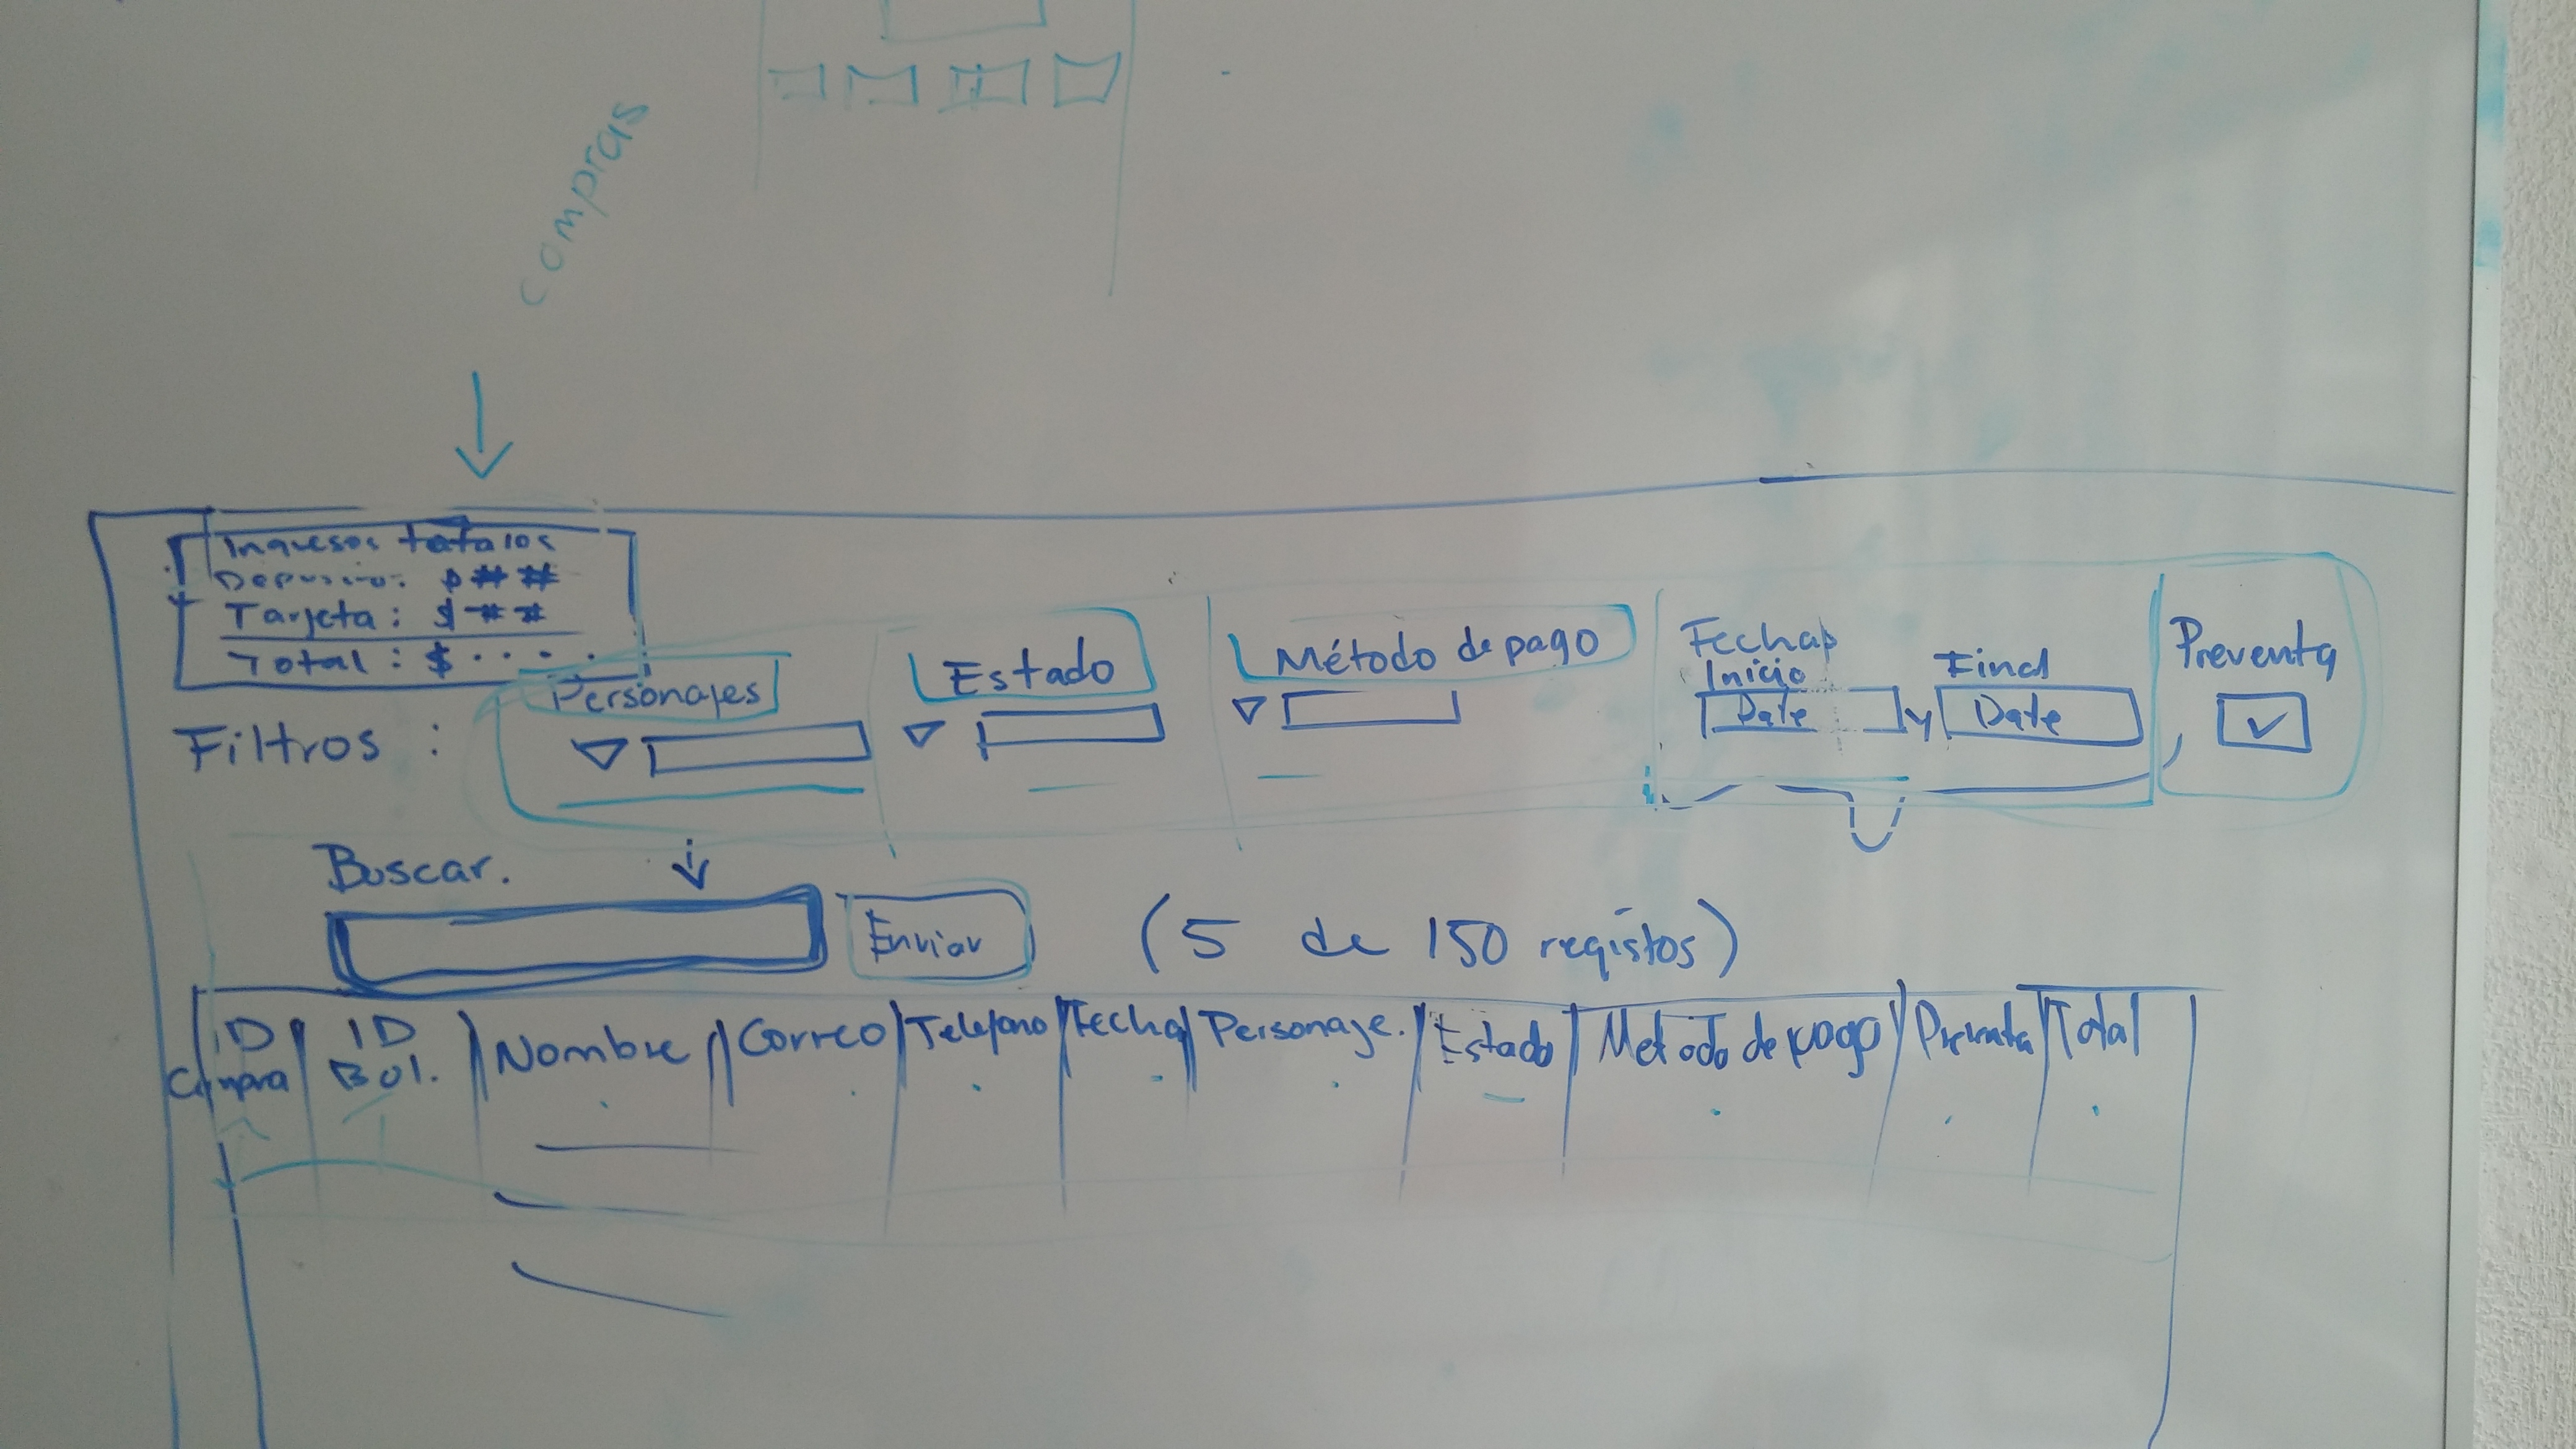 compras
Ingresos totales
Deposito: $ ##
Tarjeta: $ ##
Total: $ . . . .
Filtros :
Personajes
Estado
Método de pago
Fechas
Inicio
Final
Date y Date
Preventa
Buscar.
Enviar
(5 de 150 registos)
ID Compra
ID Bol.
Nombre
Correo
Telefono
Fecha
Personaje.
Estado
Metodo de pago
Preventa
Total